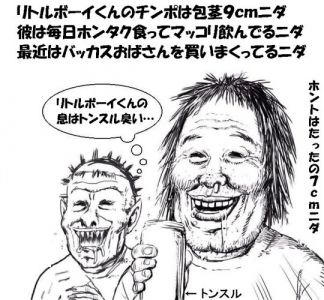 リトルボーイくんのチンポは包茎9cmニダ
彼は毎日ホンタク食ってマッコリ飲んでるニダ
最近はバッカスおばさんを買いまくってるニダ
ホントはたったの7cmニダ
リトルボーイくんの
息はトンスル臭い…
←トンスル